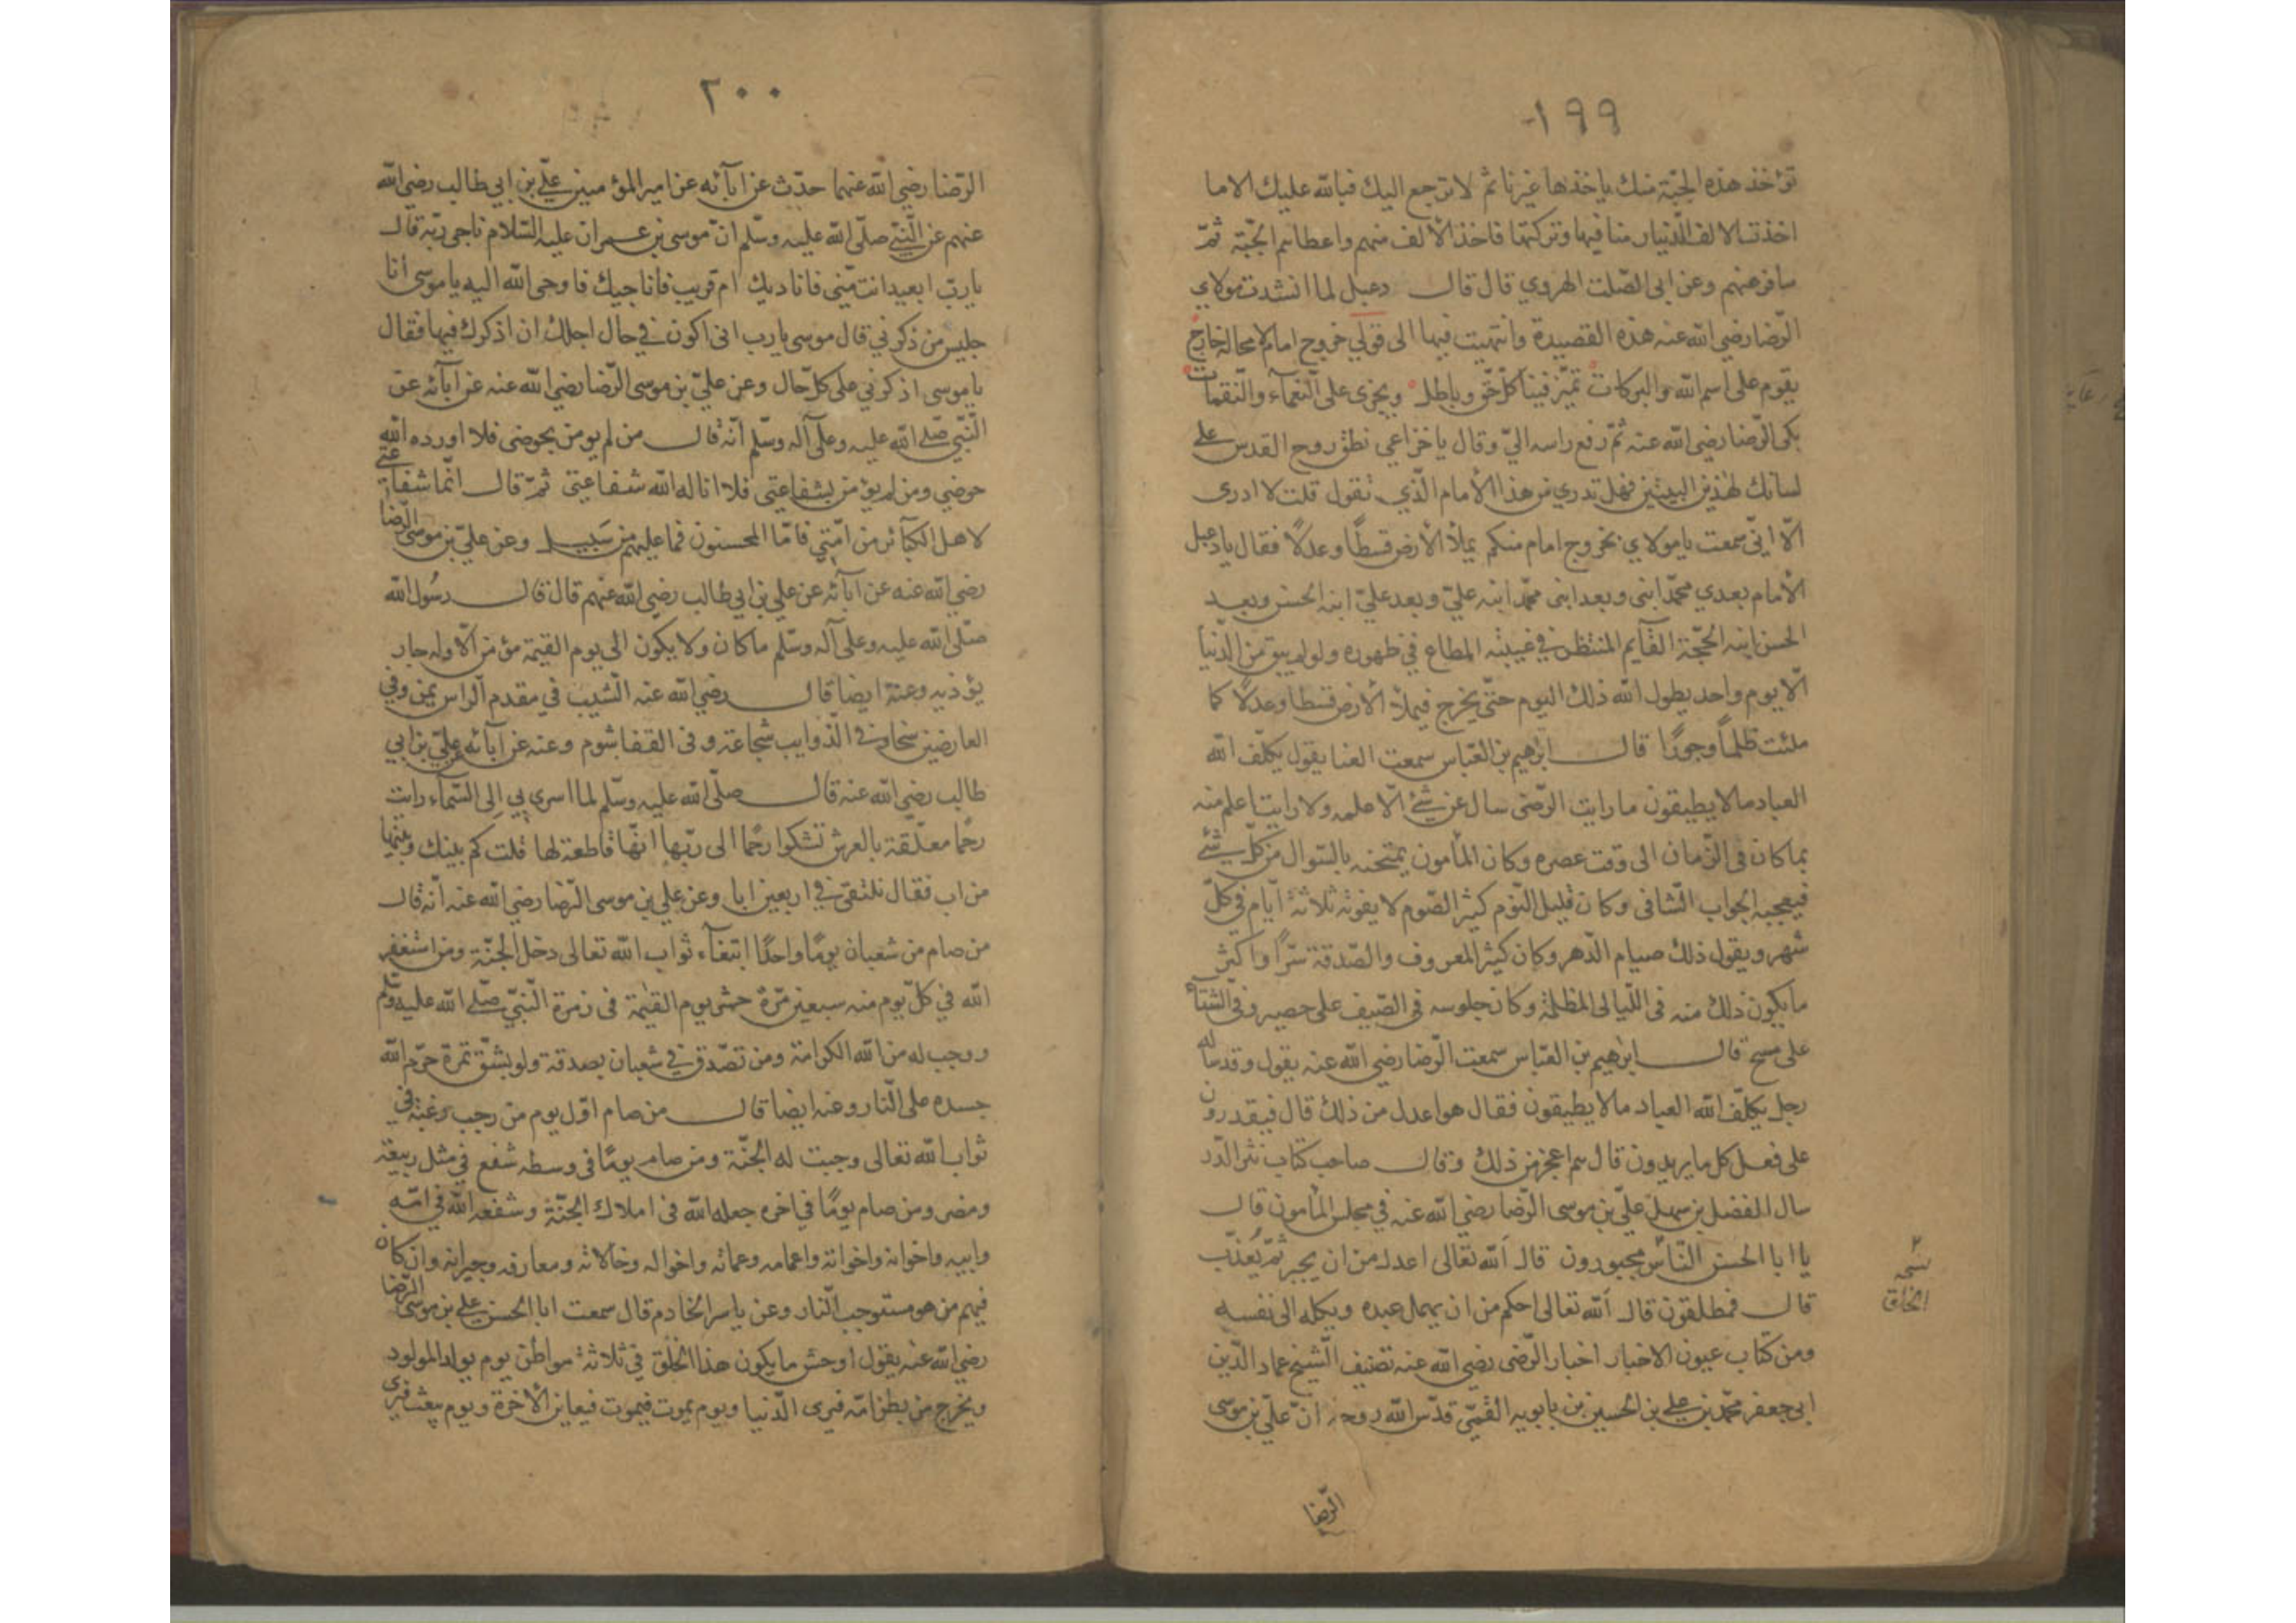 ١٩٩
تؤخذ هذه الجبّة منك ياخذها غيرنا ثم لا ترجع اليك فبالله عليك الا ما
اخذت الالف الدّينار منا فيها وتركتها فاخذ الألف منهم واعطاهم الجبّة ثمّ
سافر عنهم وعن ابى الصّلت الهروي قال قال دعبل لما انشدت مولاي
الرّضا رضي الله عنه هذه القصيدة وانتهيت فيها الى قولي خروج امام لا محالة خارج
يقوم على اسم الله والبركات تميّز فينا كلّ حقّ وباطل ويجزى على النّعماء والنّقمات
بكى الرّضا رضي الله عنه ثمّ رفع راسه اليّ وقال يا خزاعي نطق روح القدس على
لسانك لهذين البيتين فهل تدري من هذا الأمام الّذي تقول قلت لا ادرى
الّا انّي سمعت يا مولاي بخروج امام منكم يملأ الأرض قسطًا وعدلًا فقال يا دعبل
الأمام بعدي محمّد ابنى وبعد ابنى محمّد ابنه عليّ وبعد عليّ ابنه الحسن وبعد
الحسن ابنه الحجّة القآيم المنتظر في غيبته المطاع في ظهوره ولو لم يبق من الدّنيا
الّا يوم واحد يطول الله ذلك اليوم حتّى يخرج فيملأ الأرض قسطا وعدلًا كما
ملئت ظلماً وجورًا قال ابرهيم بن العبّاس سمعت العنا يقول يكلّف الله
العباد ما لا يطيقون ما رايت الرّضى سال عن شئ الّا علمه ولا رايت اعلم منه
بما كان فى الزّمان الى وقت عصره وكان المأمون يمتحنه بالسّوال من كلّ شئ
فيجيبه الجواب الشّافى وكان قليل النّوم كثير الصّوم لا يفوته ثلاثة ايّام في كلّ
شهر ويقول ذلك صيام الدّهر وكان كثير المعروف والصّدقة سرّاً واكثر
ما يكون ذلك منه فى اللّيالى المظلمة وكان جلوسه فى الصّيف على حصير وفى الشّتآء
على مسح قال ابرهيم بن العبّاس سمعت الرّضا رضي الله عنه يقول وقد ساله
رجل يكلّف الله العباد ما لا يطيقون فقال هو اعدل من ذلك قال فيقدرون
على فعل كل ما يريدون قال هم اعجز من ذلك وقال صاحب كتاب نثر الدّرّ
سال الفضل بن سهل عليّ بن موسى الرّضا رضي الله عنه في مجلس المأمون قال
يا ابا الحسن النّاس مجبورون قال الله تعالى اعدل من ان يجبر ثمّ يُعذّب
قال فمطلقون قال الله تعالى احكم من ان يهمل عبده ويكله الى نفسه
ومن كتاب عيون الاخبار اخبار الرّضى رضي الله عنه تصنيف الشّيخ عماد الدّين
ابي جعفر محمّد بن علي بن الحسين بن بابويه القمّي قدّس الله روحه انّ عليّ بن موسى
الرّضا
نسخه
الخلق
٢٠٠
الرّضا رضي الله عنهما حدّث عن ابآئه عن امير المؤمنين عليّ بن ابي طالب رضي الله
عنهم عن النّبيّ صلّى الله عليه وسلّم انّ موسى بن عمران عليه السّلام ناجى ربّه قال
يا ربّ ابعيد انت منّي فاناديك ام قريب فاناجيك فاوحى الله اليه يا موسى انا
جليس من ذكرني قال موسى يا رب انى اكون في حال اجلك ان اذكرك فيها فقال
يا موسى اذكرني على كلّ حال وعن عليّ بن موسى الرّضا رضي الله عنه عن آبآئه عن
النّبيّ صلى الله عليه وعلى آله وسلّم انّه قال من لم يومن بحوضى فلا اورده الله
حوضي ومن لم يؤمن بشفاعتي فلا اناله الله شفاعتي ثمّ قال انّما شفاعتي
لاهل الكبآئر من امّتي فامّا المحسنون فما عليهم من سَبيل وعن عليّ بن موسى الرّضا
رضي الله عنه عن ابآئه عن علي بن ابي طالب رضي الله عنهم قال قال رسُول الله
صلّى الله عليه وعلى آله وسلّم ما كان ولا يكون الى يوم القيمة مؤمن الّا وله جار
يؤذيه وعنه ايضا قال رضي الله عنه الشّيب في مقدم الراس يمن وفي
العارضين سخاء وفي الذّوايب شجاعة وفى القفا شوم وعنه عن آبآئه عليّ بن ابي
طالب رضي الله عنه قال صلّى الله عليه وسلّم لما اسري بي الى السّماء رايت
رحما معلّقة بالعرش تشكوا رحما الى ربّها انّها قاطعة لها قلت كم بينك وبينها
من اب فقال نلتقى في اربعين ابا وعن علي بن موسى الرّضا رضي الله عنه انّه قال
من صام من شعبان يومًا واحدًا ابتغآء ثواب الله تعالى دخل الجنّة ومن استغفر
الله في كلّ يوم منه سبعين مرّة حشر يوم القيمة فى زمرة النّبيّ صلى الله عليه وسلّم
ووجب له من الله الكرامة ومن تصّدق في شعبان بصدقة ولو بشقّ تمرة حرّم الله
جسده على النّار وعنه ايضا قال من صام اوّل يوم من رجب رغبة في
ثواب الله تعالى وجبت له الجنّة ومن صام يومًا فى وسطه شفع في مثل ربيعة
ومضر ومن صام يومًا في اخره جعله الله فى املاك الجنّة وشفعه الله في امّه
وابيه واخوانه واخواته واعمامه وعماته واخواله وخالاته ومعارفه وجيرانه وان كان
فيهم من هو مستوجب النّار وعن ياسر الخادم قال سمعت ابا الحسن علي بن موسى الرّضا
رضي الله عنه يقول اوحش ما يكون هذا الخلق في ثلاثة مواطن يوم يولد المولود
ويخرج من بطن امّه فيرى الدّنيا ويوم يموت فيموت فيعاين الأخرة ويوم يبعث فيرى